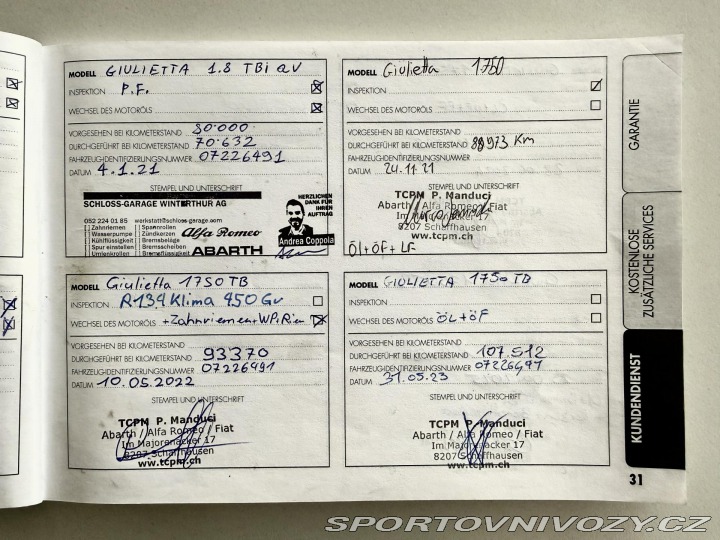 MODELL GIULIETTA 1.8 TBi QV
INSPEKTION P.F.
WECHSEL DES MOTORÖLS
VORGESEHEN BEI KILOMETERSTAND 80.000
DURCHGEFÜHRT BEI KILOMETERSTAND 70.632
FAHRZEUGIDENTIFIZIERUNGSNUMMER 07226491
DATUM 4.1.21
STEMPEL UND UNTERSCHRIFT
SCHLOSS-GARAGE WINTERTHUR AG
052 224 01 85 werkstatt@schloss-garage.com
[] Zahnriemen [] Sparrollen
[] Wasserpumpe [] Zündkerzen
[] Kühlflüssigkeit [] Bremsbeläge
[] Spur einstellen [] Bremsscheiben
[] Umlenkrollen [] Bremsflüssigkeit
Alfa Romeo
ABARTH
HERZLICHEN
DANK FÜR
IHREN
AUFTRAG
Andrea Coppola
MODELL Giulietta 1750
INSPEKTION
WECHSEL DES MOTORÖLS
VORGESEHEN BEI KILOMETERSTAND
DURCHGEFÜHRT BEI KILOMETERSTAND 88973 Km
FAHRZEUGIDENTIFIZIERUNGSNUMMER
DATUM 24.11.21
STEMPEL UND UNTERSCHRIFT
TCPM P. Manduci
Abarth / Alfa Romeo / Fiat
Im Majorenacker 17
8207 Schaffhausen
www.tcpm.ch
Öl+ÖF+LF
MODELL Giulietta 1750 TB
INSPEKTION R134 Klima 450 Gr
WECHSEL DES MOTORÖLS +Zahnriemen+WP+Rien
VORGESEHEN BEI KILOMETERSTAND
DURCHGEFÜHRT BEI KILOMETERSTAND 93370
FAHRZEUGIDENTIFIZIERUNGSNUMMER 07226491
DATUM 10.05.2022
STEMPEL UND UNTERSCHRIFT
TCPM P. Manduci
Abarth / Alfa Romeo / Fiat
Im Majorenacker 17
8207 Schaffhausen
www.tcpm.ch
MODELL GIULIETTA 1750 TB
INSPEKTION
WECHSEL DES MOTORÖLS ÖL+ÖF
VORGESEHEN BEI KILOMETERSTAND
DURCHGEFÜHRT BEI KILOMETERSTAND 107.512
FAHRZEUGIDENTIFIZIERUNGSNUMMER 07226491
DATUM 31.05.23
STEMPEL UND UNTERSCHRIFT
TCPM P. Manduci
Abarth / Alfa Romeo / Fiat
Im Majorenacker 17
8207 Schaffhausen
www.tcpm.ch
GARANTIE
KOSTENLOSE
ZUSÄTZLICHE SERVICES
KUNDENDIENST
31
SPORTOVNIVOZY.CZ